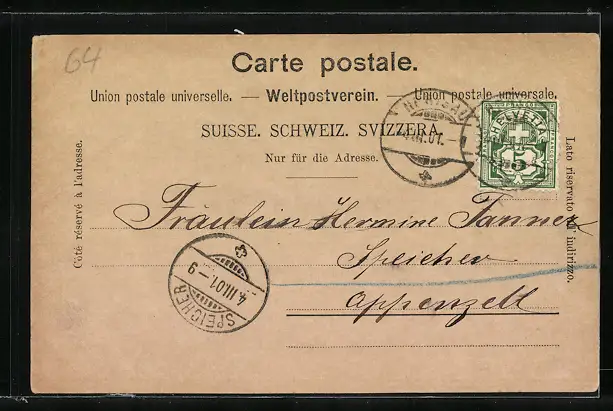 64
Carte postale.
Union postale universelle. — Weltpostverein. — Union postale universale.
SUISSE. SCHWEIZ. SVIZZERA.
Nur für die Adresse.
Côté réservé à l'adresse.
Lato riservato all' indirizzo.
FRANCO
HELVETIA
5
HERISAU
III.01.
Fräulein Hermine Tanner
Speicher
Appenzell
SPEICHER
4.III.01.-9